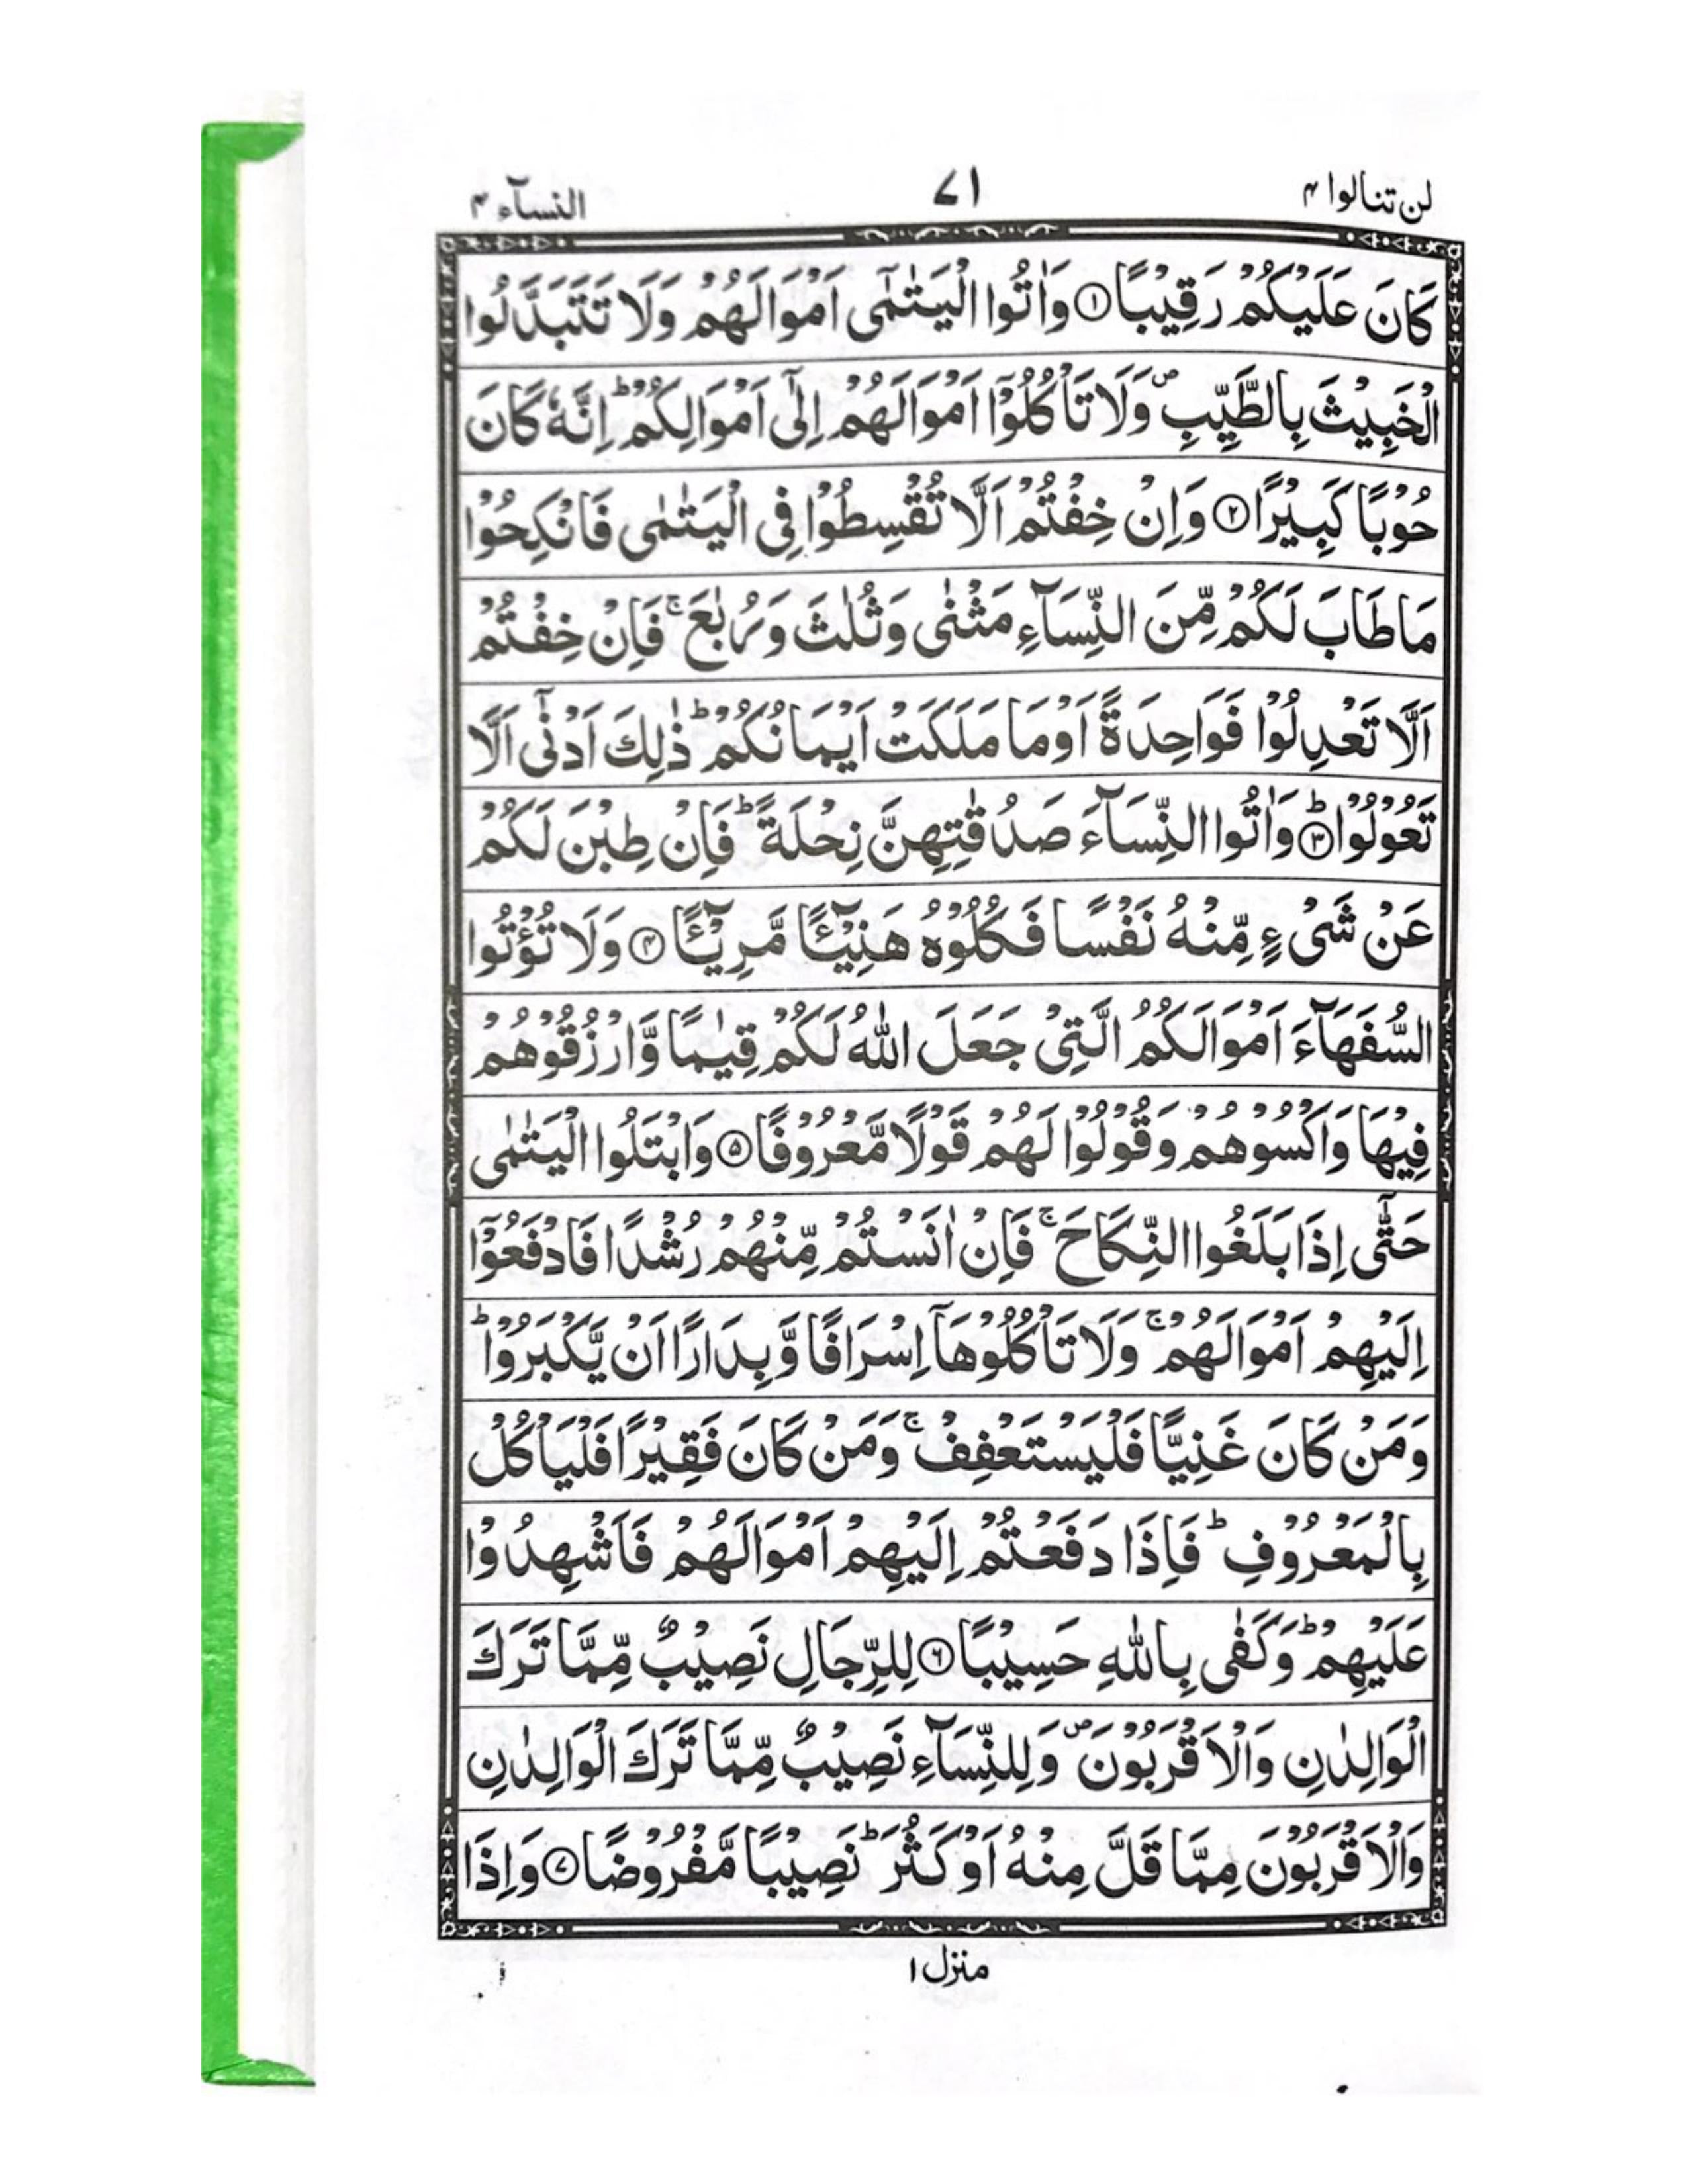 لن تنالوا ۴ ۷۱ النسآء ۴
كَانَ عَلَيْكُمْ رَقِيْبًا ۝۱ وَاٰتُوا الْيَتٰمٰۤى اَمْوَالَهُمْ وَلَا تَتَبَدَّلُوا
الْخَبِيْثَ بِالطَّيِّبِ ۪ وَلَا تَاْكُلُوْۤا اَمْوَالَهُمْ اِلٰۤى اَمْوَالِكُمْ ؕ اِنَّهٗ كَانَ
حُوْبًا كَبِيْرًا ۝۲ وَاِنْ خِفْتُمْ اَلَّا تُقْسِطُوْا فِى الْيَتٰمٰى فَانْكِحُوْا
مَا طَابَ لَكُمْ مِّنَ النِّسَآءِ مَثْنٰى وَثُلٰثَ وَرُبٰعَ ۚ فَاِنْ خِفْتُمْ
اَلَّا تَعْدِلُوْا فَوَاحِدَةً اَوْ مَا مَلَكَتْ اَيْمَانُكُمْ ؕ ذٰلِكَ اَدْنٰۤى اَلَّا
تَعُوْلُوْا ؕ۝۳ وَاٰتُوا النِّسَآءَ صَدُقٰتِهِنَّ نِحْلَةً ؕ فَاِنْ طِبْنَ لَكُمْ
عَنْ شَىْءٍ مِّنْهُ نَفْسًا فَكُلُوْهُ هَنِيْٓــًٔا مَّرِيْٓــًٔا ۝۴ وَلَا تُؤْتُوا
السُّفَهَآءَ اَمْوَالَكُمُ الَّتِىْ جَعَلَ اللّٰهُ لَكُمْ قِيٰمًا وَّارْزُقُوْهُمْ
فِيْهَا وَاكْسُوْهُمْ وَقُوْلُوْا لَهُمْ قَوْلًا مَّعْرُوْفًا ۝۵ وَابْتَلُوا الْيَتٰمٰى
حَتّٰۤى اِذَا بَلَغُوا النِّكَاحَ ۚ فَاِنْ اٰنَسْتُمْ مِّنْهُمْ رُشْدًا فَادْفَعُوْۤا
اِلَيْهِمْ اَمْوَالَهُمْ ۚ وَلَا تَاْكُلُوْهَاۤ اِسْرَافًا وَّبِدَارًا اَنْ يَّكْبَرُوْا ؕ
وَمَنْ كَانَ غَنِيًّا فَلْيَسْتَعْفِفْ ۚ وَمَنْ كَانَ فَقِيْرًا فَلْيَاْكُلْ
بِالْمَعْرُوْفِ ؕ فَاِذَا دَفَعْتُمْ اِلَيْهِمْ اَمْوَالَهُمْ فَاَشْهِدُوْا
عَلَيْهِمْ ؕ وَكَفٰى بِاللّٰهِ حَسِيْبًا ۝۶ لِلرِّجَالِ نَصِيْبٌ مِّمَّا تَرَكَ
الْوَالِدٰنِ وَالْاَقْرَبُوْنَ ۪ وَلِلنِّسَآءِ نَصِيْبٌ مِّمَّا تَرَكَ الْوَالِدٰنِ
وَالْاَقْرَبُوْنَ مِمَّا قَلَّ مِنْهُ اَوْ كَثُرَ ؕ نَصِيْبًا مَّفْرُوْضًا ۝۷ وَاِذَا
منزل ۱